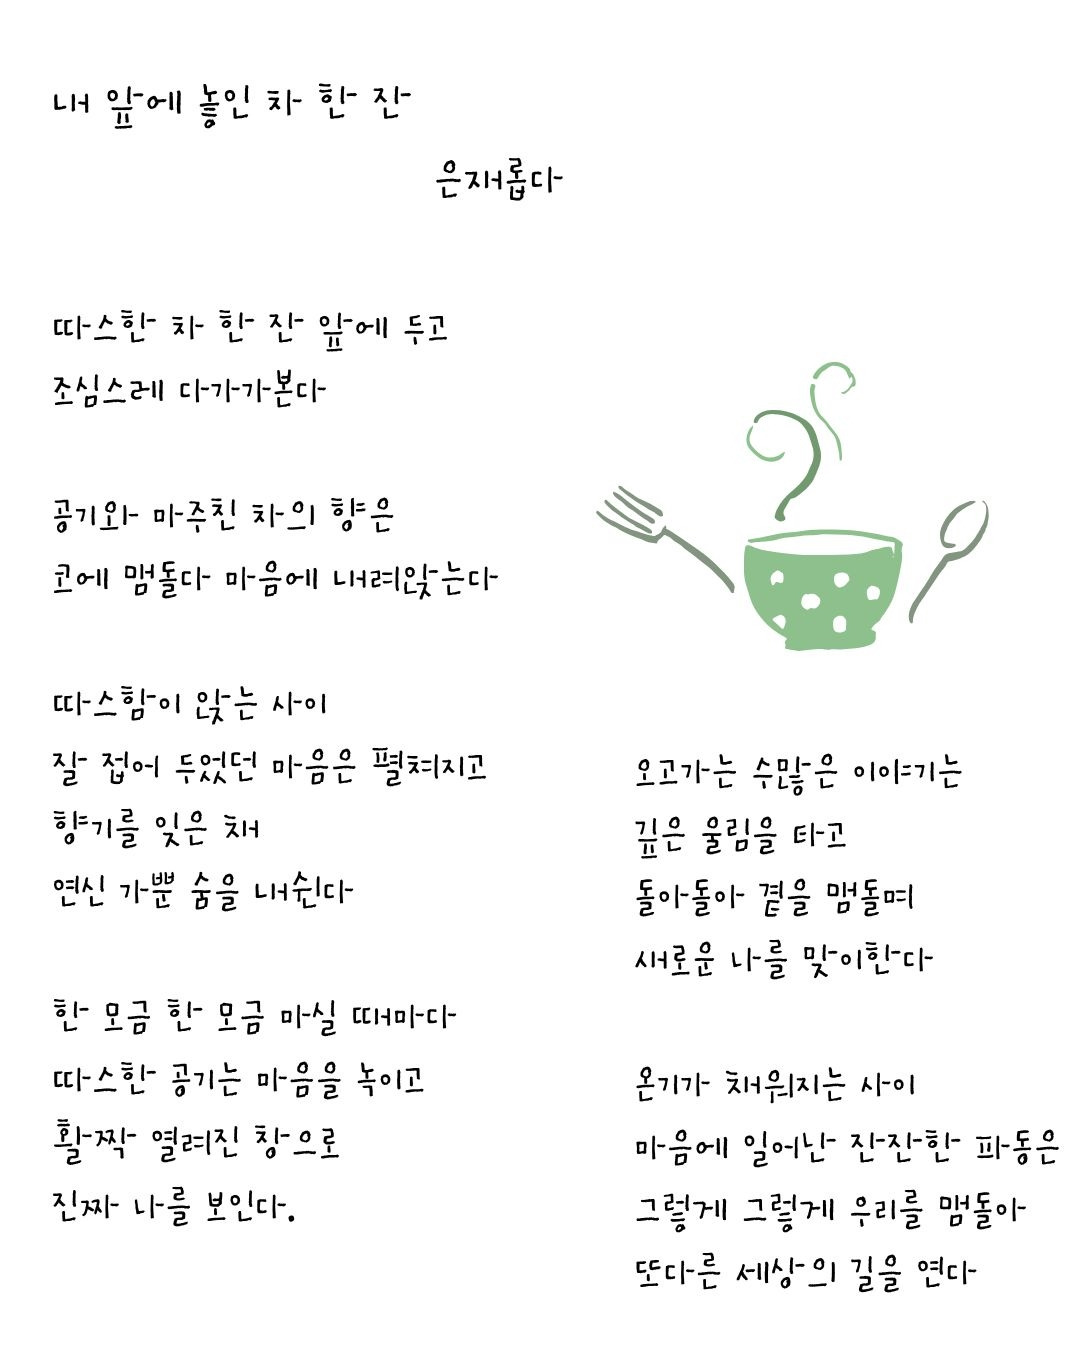 내 앞에 놓인 차 한 잔
은재롭다
따스한 차 한 잔 앞에 두고
조심스레 다가가본다
공기와 마주친 차의 향은
코에 맴돌다 마음에 내려앉는다
따스함이 앉는 사이
잘 접어 두었던 마음은 펼쳐지고
향기를 잊은 채
연신 가쁜 숨을 내쉰다
한 모금 한 모금 마실 때마다
따스한 공기는 마음을 녹이고
활짝 열려진 창으로
진짜 나를 보인다.
오고가는 수많은 이야기는
깊은 울림을 타고
돌아돌아 곁을 맴돌며
새로운 나를 맞이한다
온기가 채워지는 사이
마음에 일어난 잔잔한 파동은
그렇게 그렇게 우리를 맴돌아
또다른 세상의 길을 연다